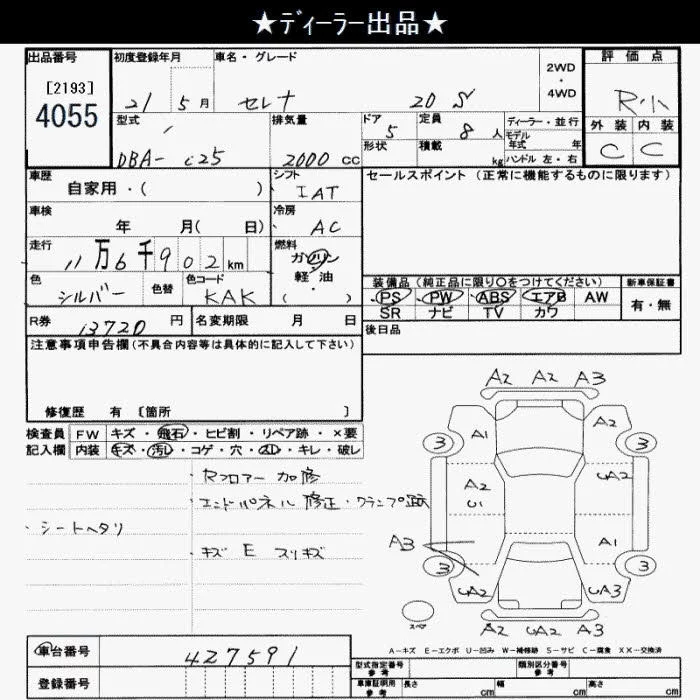 ★ディーラー出品★
出品番号
[2193]
4055
初度登録年月
21 5月
車名・グレード
セレナ 20S
2WD
・
4WD
評価点
R小
外装 内装
C C
型式
DBA- C25
排気量
2000 CC
ドア
5
定員
8人
形状
積載
kg
ディーラー・並行
モデル
年式 年
ハンドル 左・右
車歴
自家用・( )
シフト
IAT
セールスポイント (正常に機能するものに限ります)
車検
年 月( 日)
冷房
AC
走行
11万6千902km
燃料
ガソリン
・
軽・油
( )
色
シルバー
色替
色コード
KAK
装備品(純正品に限り○をつけてください)
PS PW ABS エアB AW
SR ナビ TV カワ
新車保証書
有・無
R券
13720 円
名変期限 月 日
後日品
注意事項申告欄(不具合内容等は具体的に記入して下さい)
修復歴 有 [箇所 ]
検査員
記入欄
FW キズ・飛石・ヒビ割・リペア跡・×要
内装 キズ・汚レ・コゲ・穴・スレ・キレ・破レ
Rフロアー 加修
エンドパネル 修正・クランプ跡
・シートヘタリ
・キズ E スリキズ
A2 A2 A3
A1 A2
3 3
A2 UA2
U1
A3 A1
3 3
UA2 UA3
スペア
A2 UA2 A3
A-キズ E-エクボ U-凹み W-補修跡 S-サビ C-腐食 XX-交換済
車台番号
427591
登録番号
型式指定番号
参考
類別区分番号
参考
車庫証明用
参考
長さ cm
幅 cm
高さ cm